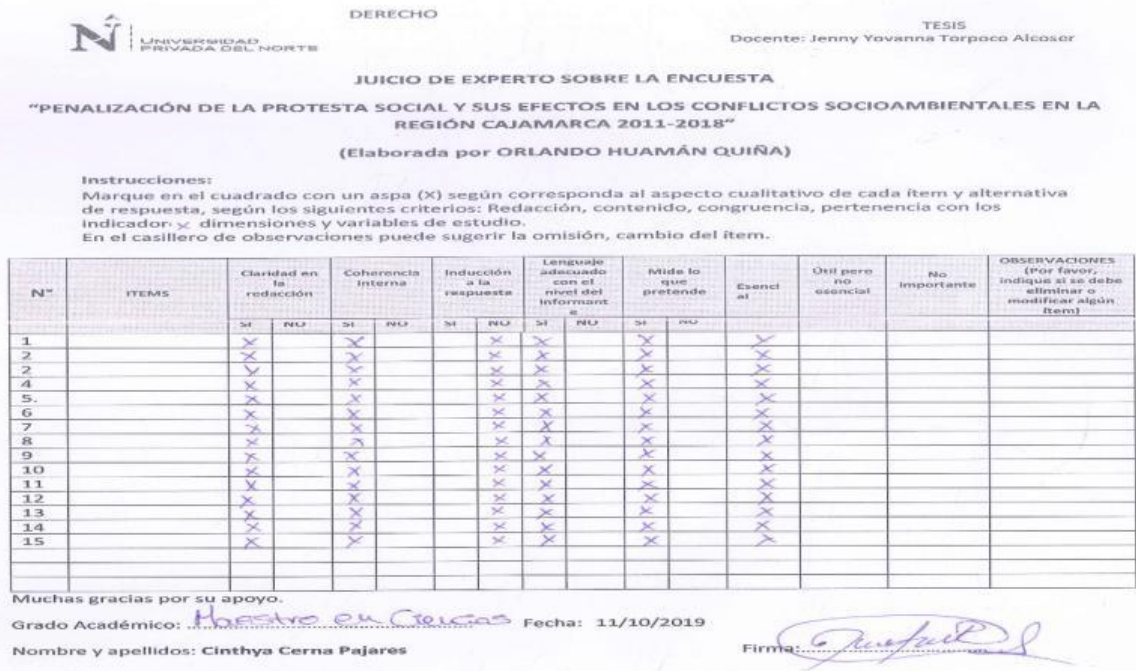 DERECHO
UNIVERSIDAD
PRIVADA DEL NORTE
TESIS
Docente: Jenny Yovanna Torpoco Alcoser
JUICIO DE EXPERTO SOBRE LA ENCUESTA
"PENALIZACIÓN DE LA PROTESTA SOCIAL Y SUS EFECTOS EN LOS CONFLICTOS SOCIOAMBIENTALES EN LA
REGIÓN CAJAMARCA 2011-2018"
(Elaborada por ORLANDO HUAMÁN QUIÑA)
Instrucciones:
Marque en el cuadrado con un aspa (X) según corresponda al aspecto cualitativo de cada ítem y alternativa
de respuesta, según los siguientes criterios: Redacción, contenido, congruencia, pertenencia con los
indicador x dimensiones y variables de estudio.
En el casillero de observaciones puede sugerir la omisión, cambio del ítem.
N° ITEMS Claridad en la redacción Coherencia interna Inducción a la respuesta Lenguaje adecuado con el nivel del informante Mide lo que pretende Esencial Útil pero no esencial No importante OBSERVACIONES (Por favor, indique si se debe eliminar o modificar algún ítem)
SI NO SI NO SI NO SI NO SI NO
1 X X X X X X
2 X X X X X X
2 X X X X X X
4 X X X X X X
5. X X X X X X
6 X X X X X X
7 X X X X X X
8 X X X X X X
9 X X X X X X
10 X X X X X X
11 X X X X X X
12 X X X X X X
13 X X X X X X
14 X X X X X X
15 X X X X X X
Muchas gracias por su apoyo.
Grado Académico: Maestro en Ciencias Fecha: 11/10/2019
Nombre y apellidos: Cinthya Cerna Pajares Firma: